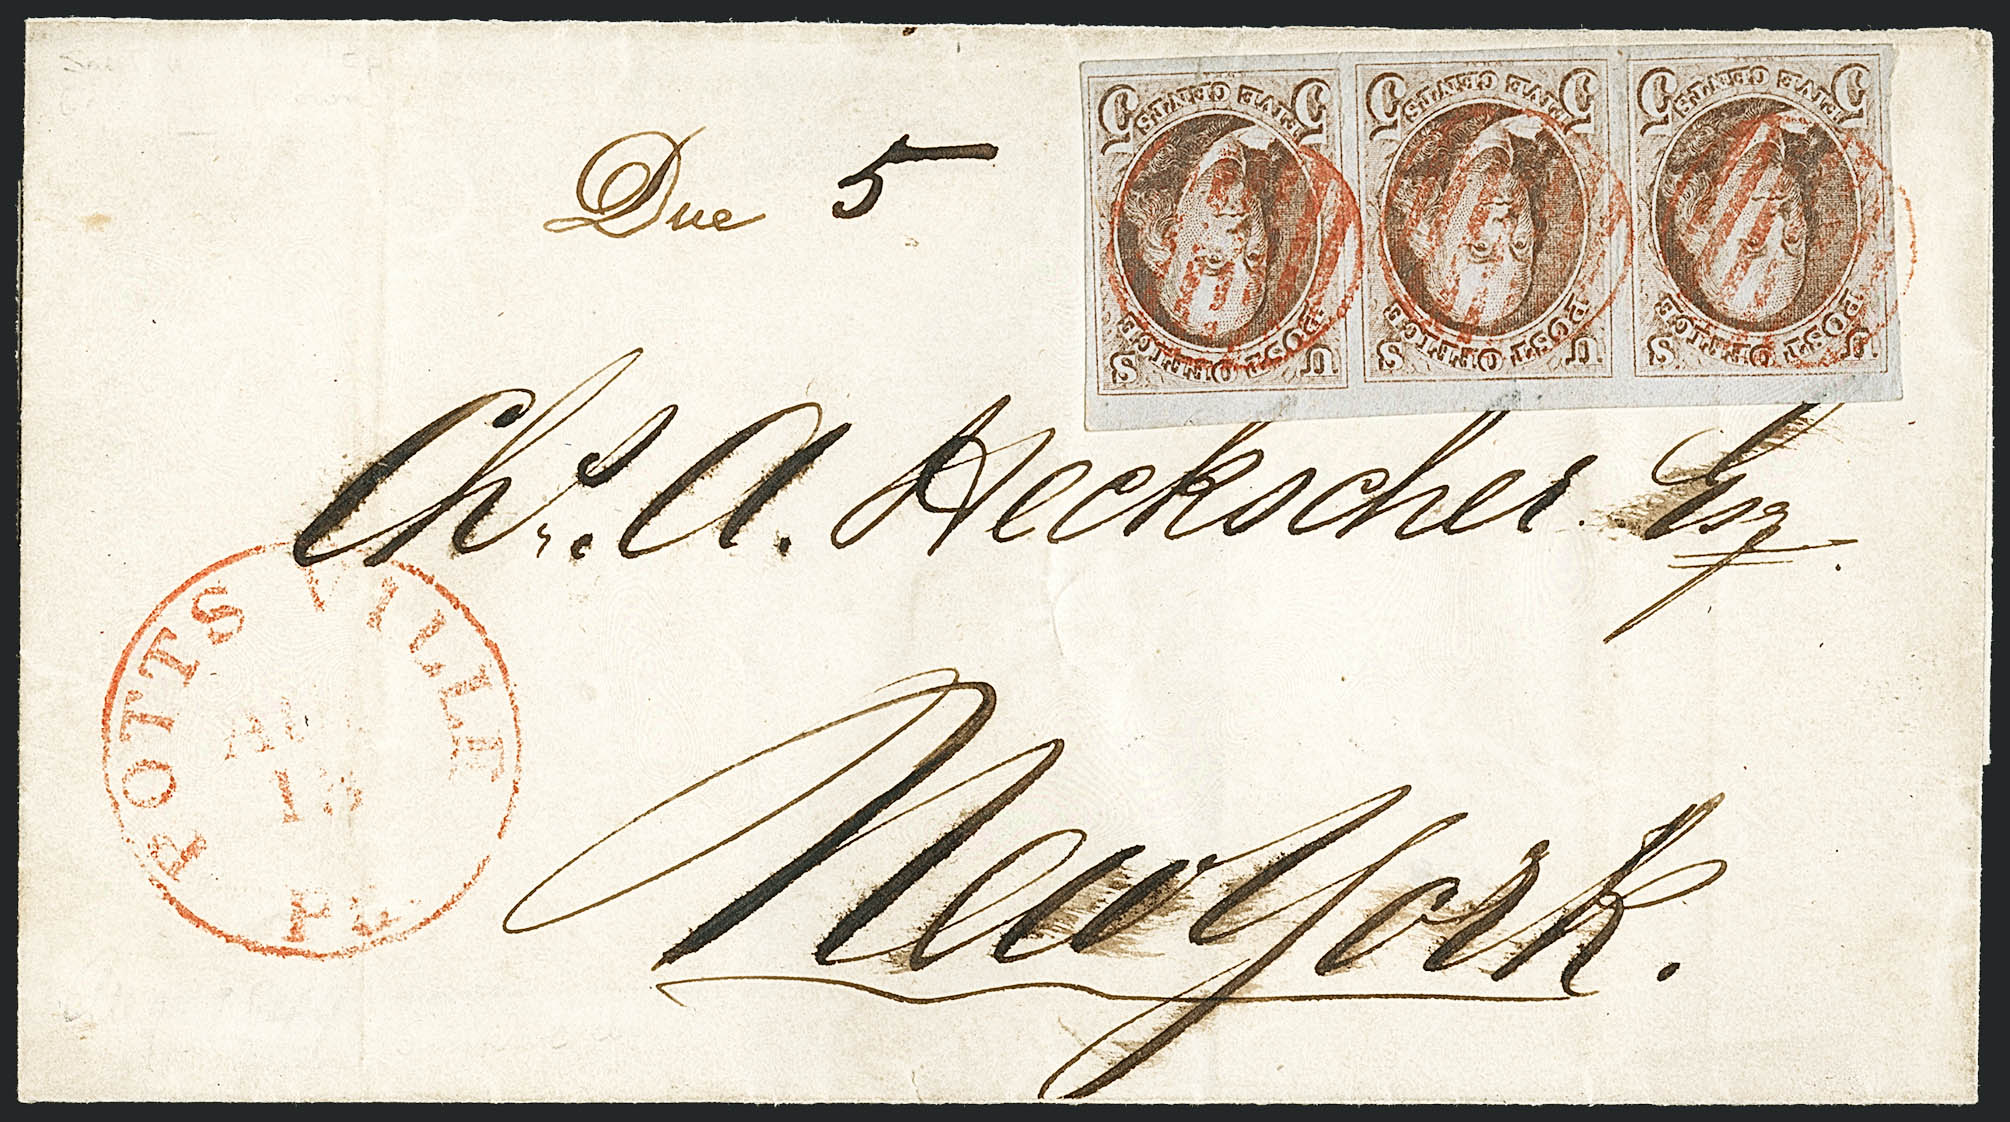 Due 5
5 FIVE CENTS 5
U POST OFFICE S
5 FIVE CENTS 5
U POST OFFICE S
5 FIVE CENTS 5
U POST OFFICE S
Chs. A. Heckscher Esq.
New York.
POTTSVILLE
AUG
13
Pa.